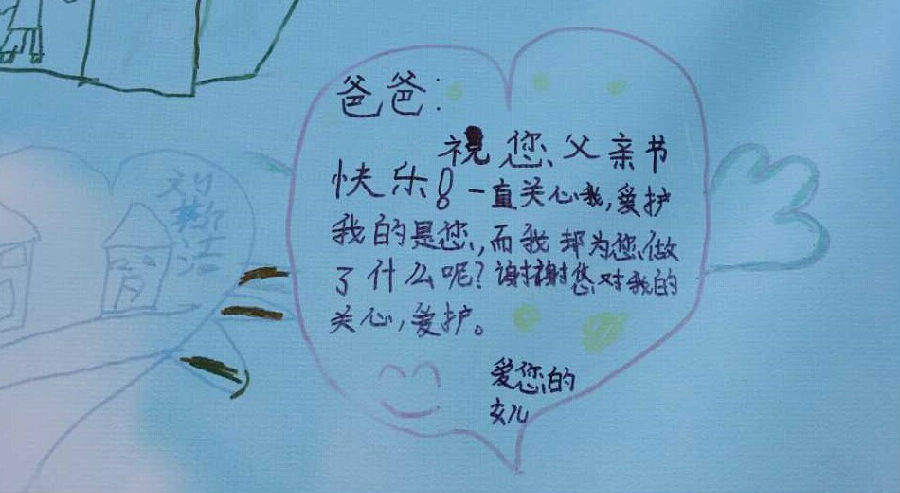 爸爸：
祝您父亲节
快乐！一直关心我，爱护
我的是您，而我却为您做
了什么呢？谢谢您对我的
关心，爱护。
爱您的
女儿